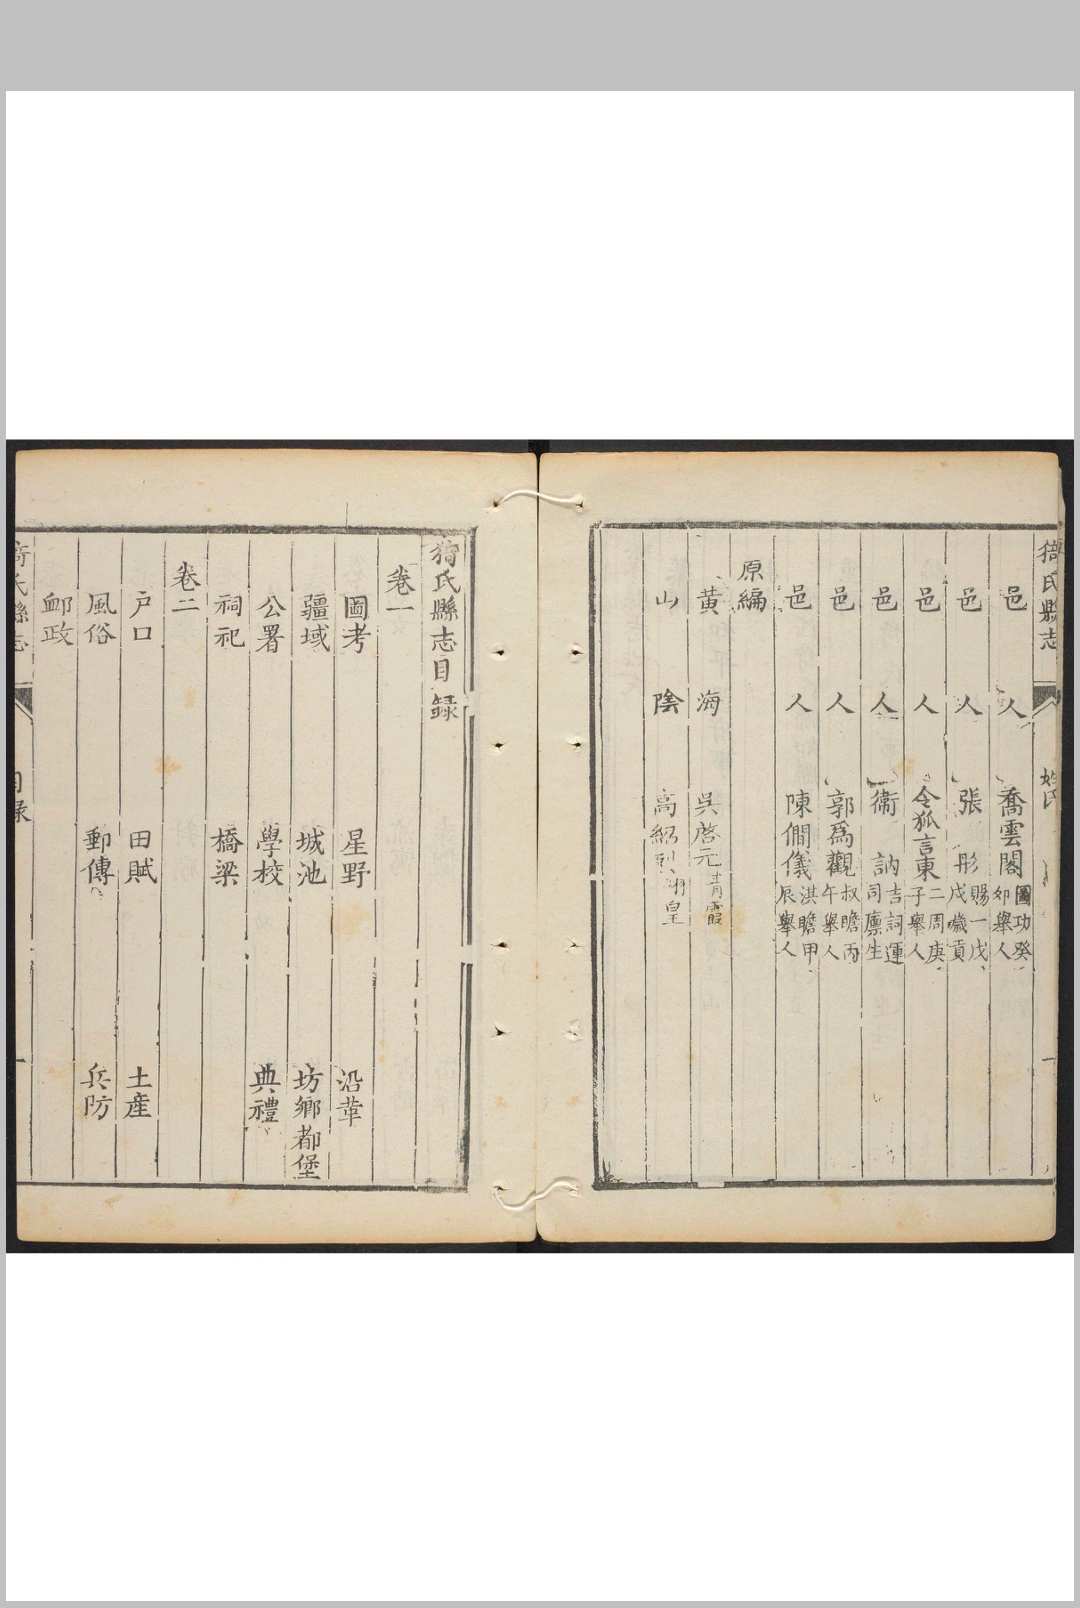 猗氏縣志 姓氏 一
邑人 喬雲閣 圖功癸卯舉人
邑人 張彤 賜一戊戌歲貢
邑人 令狐言東 二周庚子舉人
邑人 衞訥 吉詞運司廪生
邑人 郭爲觀 叔瞻丙午舉人
邑人 陳僩儀 淇瞻甲辰舉人
原編
黄海 吳啓元 青霞
山陰 高紹
猗氏縣志目録
卷一
圖考 星野 沿革
疆域 城池 坊鄉都堡
公署 學校 典禮
祠祀 橋梁
卷二
户口 田賦 土産
風俗 郵傳 兵防
卹政
猗氏縣志 目録 一